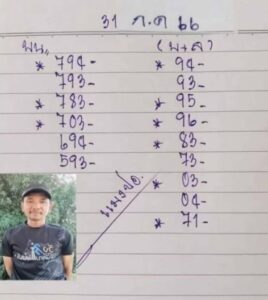 31 ก.ค 66
บน.
* 794-
793-
* 783-
* 703-
694-
593-
(บ+ล)
* 94-
93-
* 95-
* 96-
* 83-
73-
* 03-
04-
* 71-